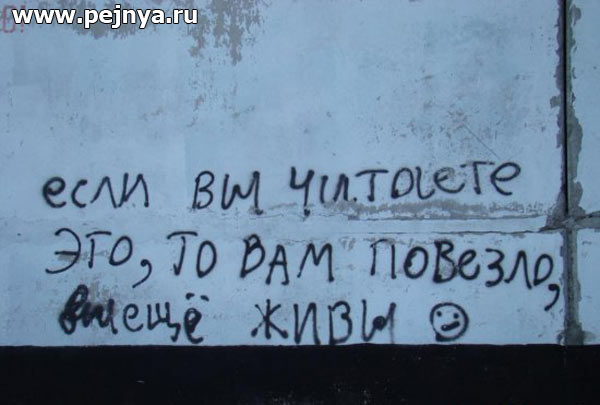 www.pejnya.ru
если вы читаете
это, то вам повезло,
вы ещё живы